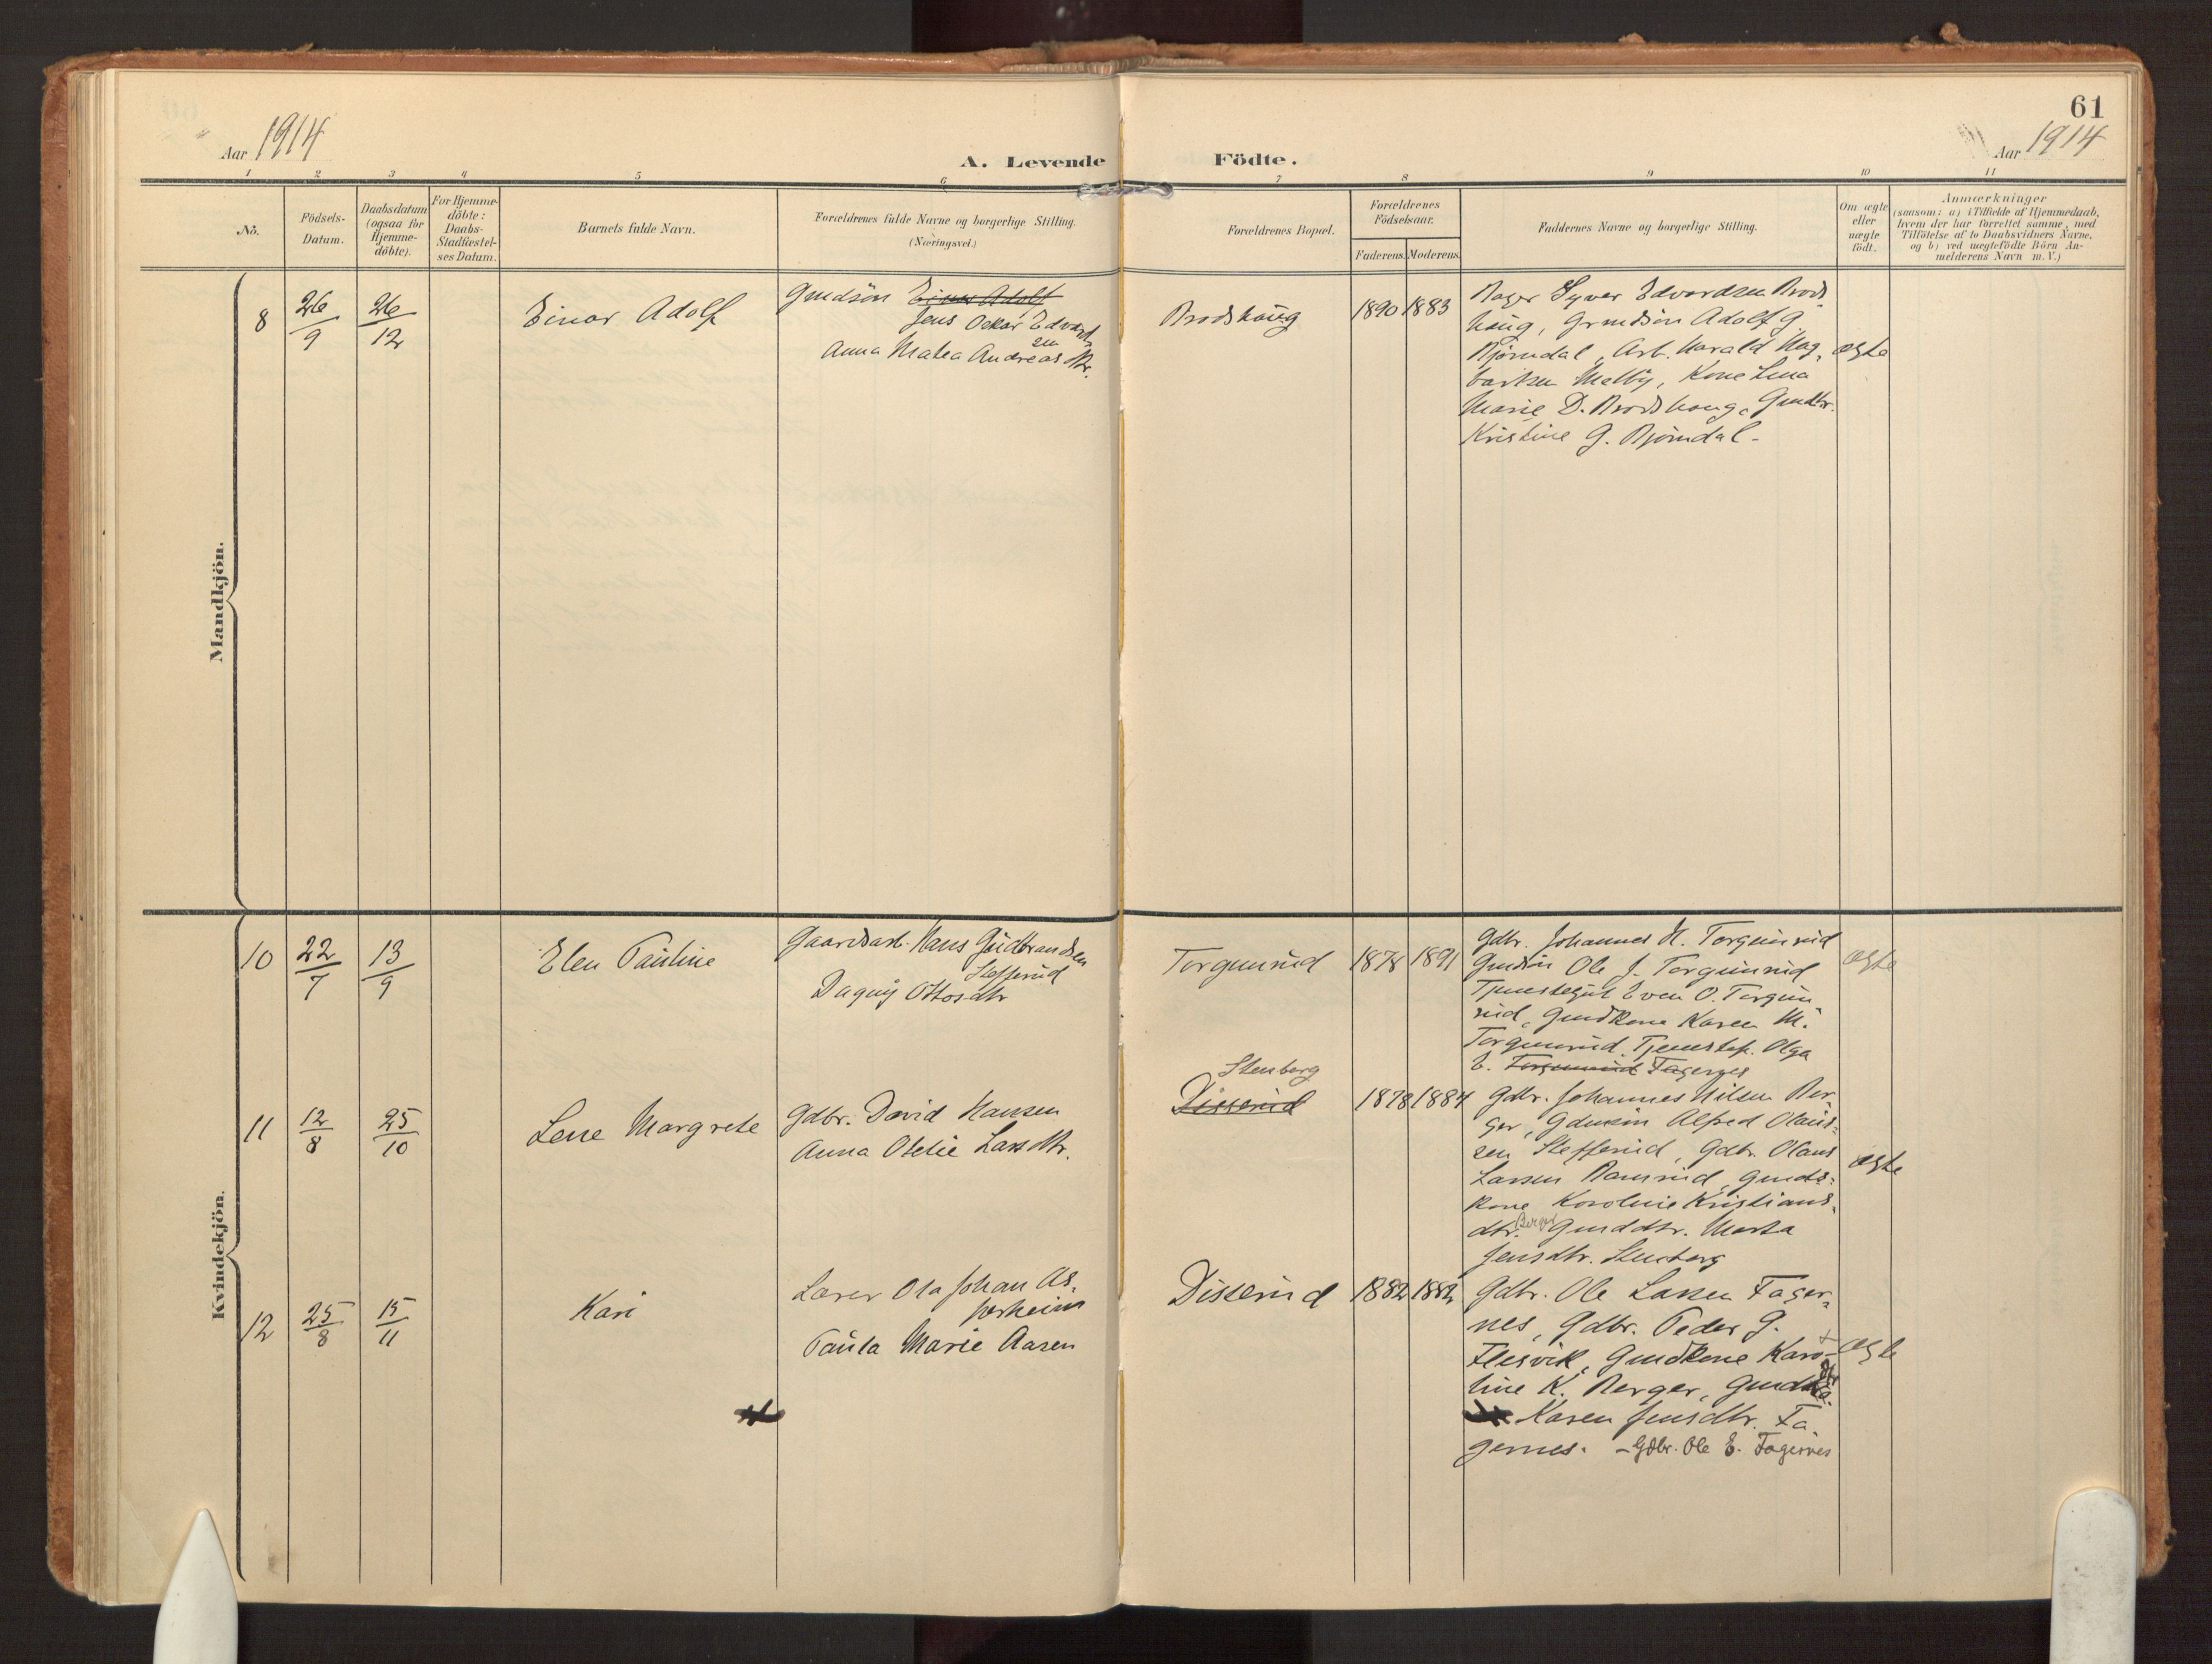 61
Aar 1914
A. Levende Födte.
Aar 1914
1 2 3 4 5 6 7 8 9 10 11
No.
Födsels-
Datum.
Daabsdatum
(ogsaa for
Hjemme-
döbte).
For Hjemme-
döbte:
Daabs-
Stadfæstel-
ses Datum.
Barnets fulde Navn.
Forældrenes fulde Navne og borgerlige Stilling.
(Næringsvei.)
Forældrenes Bopæl.
Forældrenes
Födselsaar.
Faderens. Moderens.
Faddernes Navne og borgerlige Stilling.
Om ægte
eller
uægte
födt.
Anmærkninger
(saasom: a) i Tilfælde af Hjemmedaab,
hvem der har forrettet samme, med
Tilföielse af to Daabsvidners Navne,
og b) ved uægtefödte Börn An-
melderens Navn m. V.)
Mandkjön.
8
26/9
26/12
Einar Adolf
Grudsön Einar Adolf
Jens Oskar Edvard-
sen
Anna Matea Andreasdtr.
Brodshaug
1890 1883
Bager Syver Edvardsen Brods
haug, Grundsön Adolf G.
Björndal, Arb. Harald Hag-
barthsen Melby, Kone Lina
Marie D. Brodshaug, Gmdtr.
Kristine G. Björndal -
ægte
Kvindekjön.
10
22/7
13/9
Elen Pauline
Gaardsarb. Hans Gudbrandsen
Stefferud
Dagny Ottosdtr
Torgunrud
1878 1891
Gdbr. Johannes H. Torgunrud
Gmdsön Ole J. Torgunrud
Tjenestegut Even O. Torgun-
rud, Gmdkone Karen M.
Torgunrud, Tjenestep. Olga
E. Torgunrud Fagernes
ægte
11
12/8
25/10
Lene Margrete
Gdbr. David Hansen
Anna Otelie Larsdtr.
Stenberg
Disserud
1878 1884
Gdbr. Johannes Nilsen Ber-
ger, Gdmsön Alfred Olaus-
sen Stefferud, Gdbr. Olaus
Larsen Ramsrud, Gmds-
kone Karoline Kristians-
dtr. Berger Gmddtr. Marta
Jensdtr. Stenberg
ægte
12
25/8
15/11
Kari
Lærer Ola Johan As-
perheim
Paula Marie Aasen
Disserud
1882 1882
Gdbr. Ole Larsen Fager-
nes, Gdbr. Peder G.
Flesvik, Gmdkone Karo-
line K. Berger, Gmddtr.
Karen Jensdtr. Fa-
gernes. - Gdbr. Ole E. Fagernes
ægte